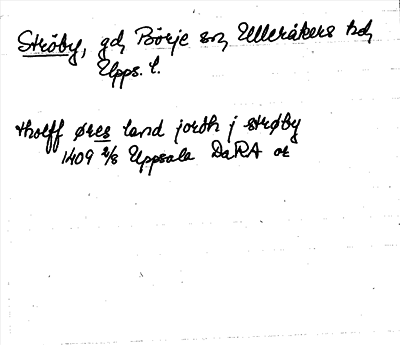 Ströby, gd, Börje sn, Ulleråkers hd,
Upps. l.
tholff øres land jordh j strøby
1409 2/8 Uppsala DaRA or